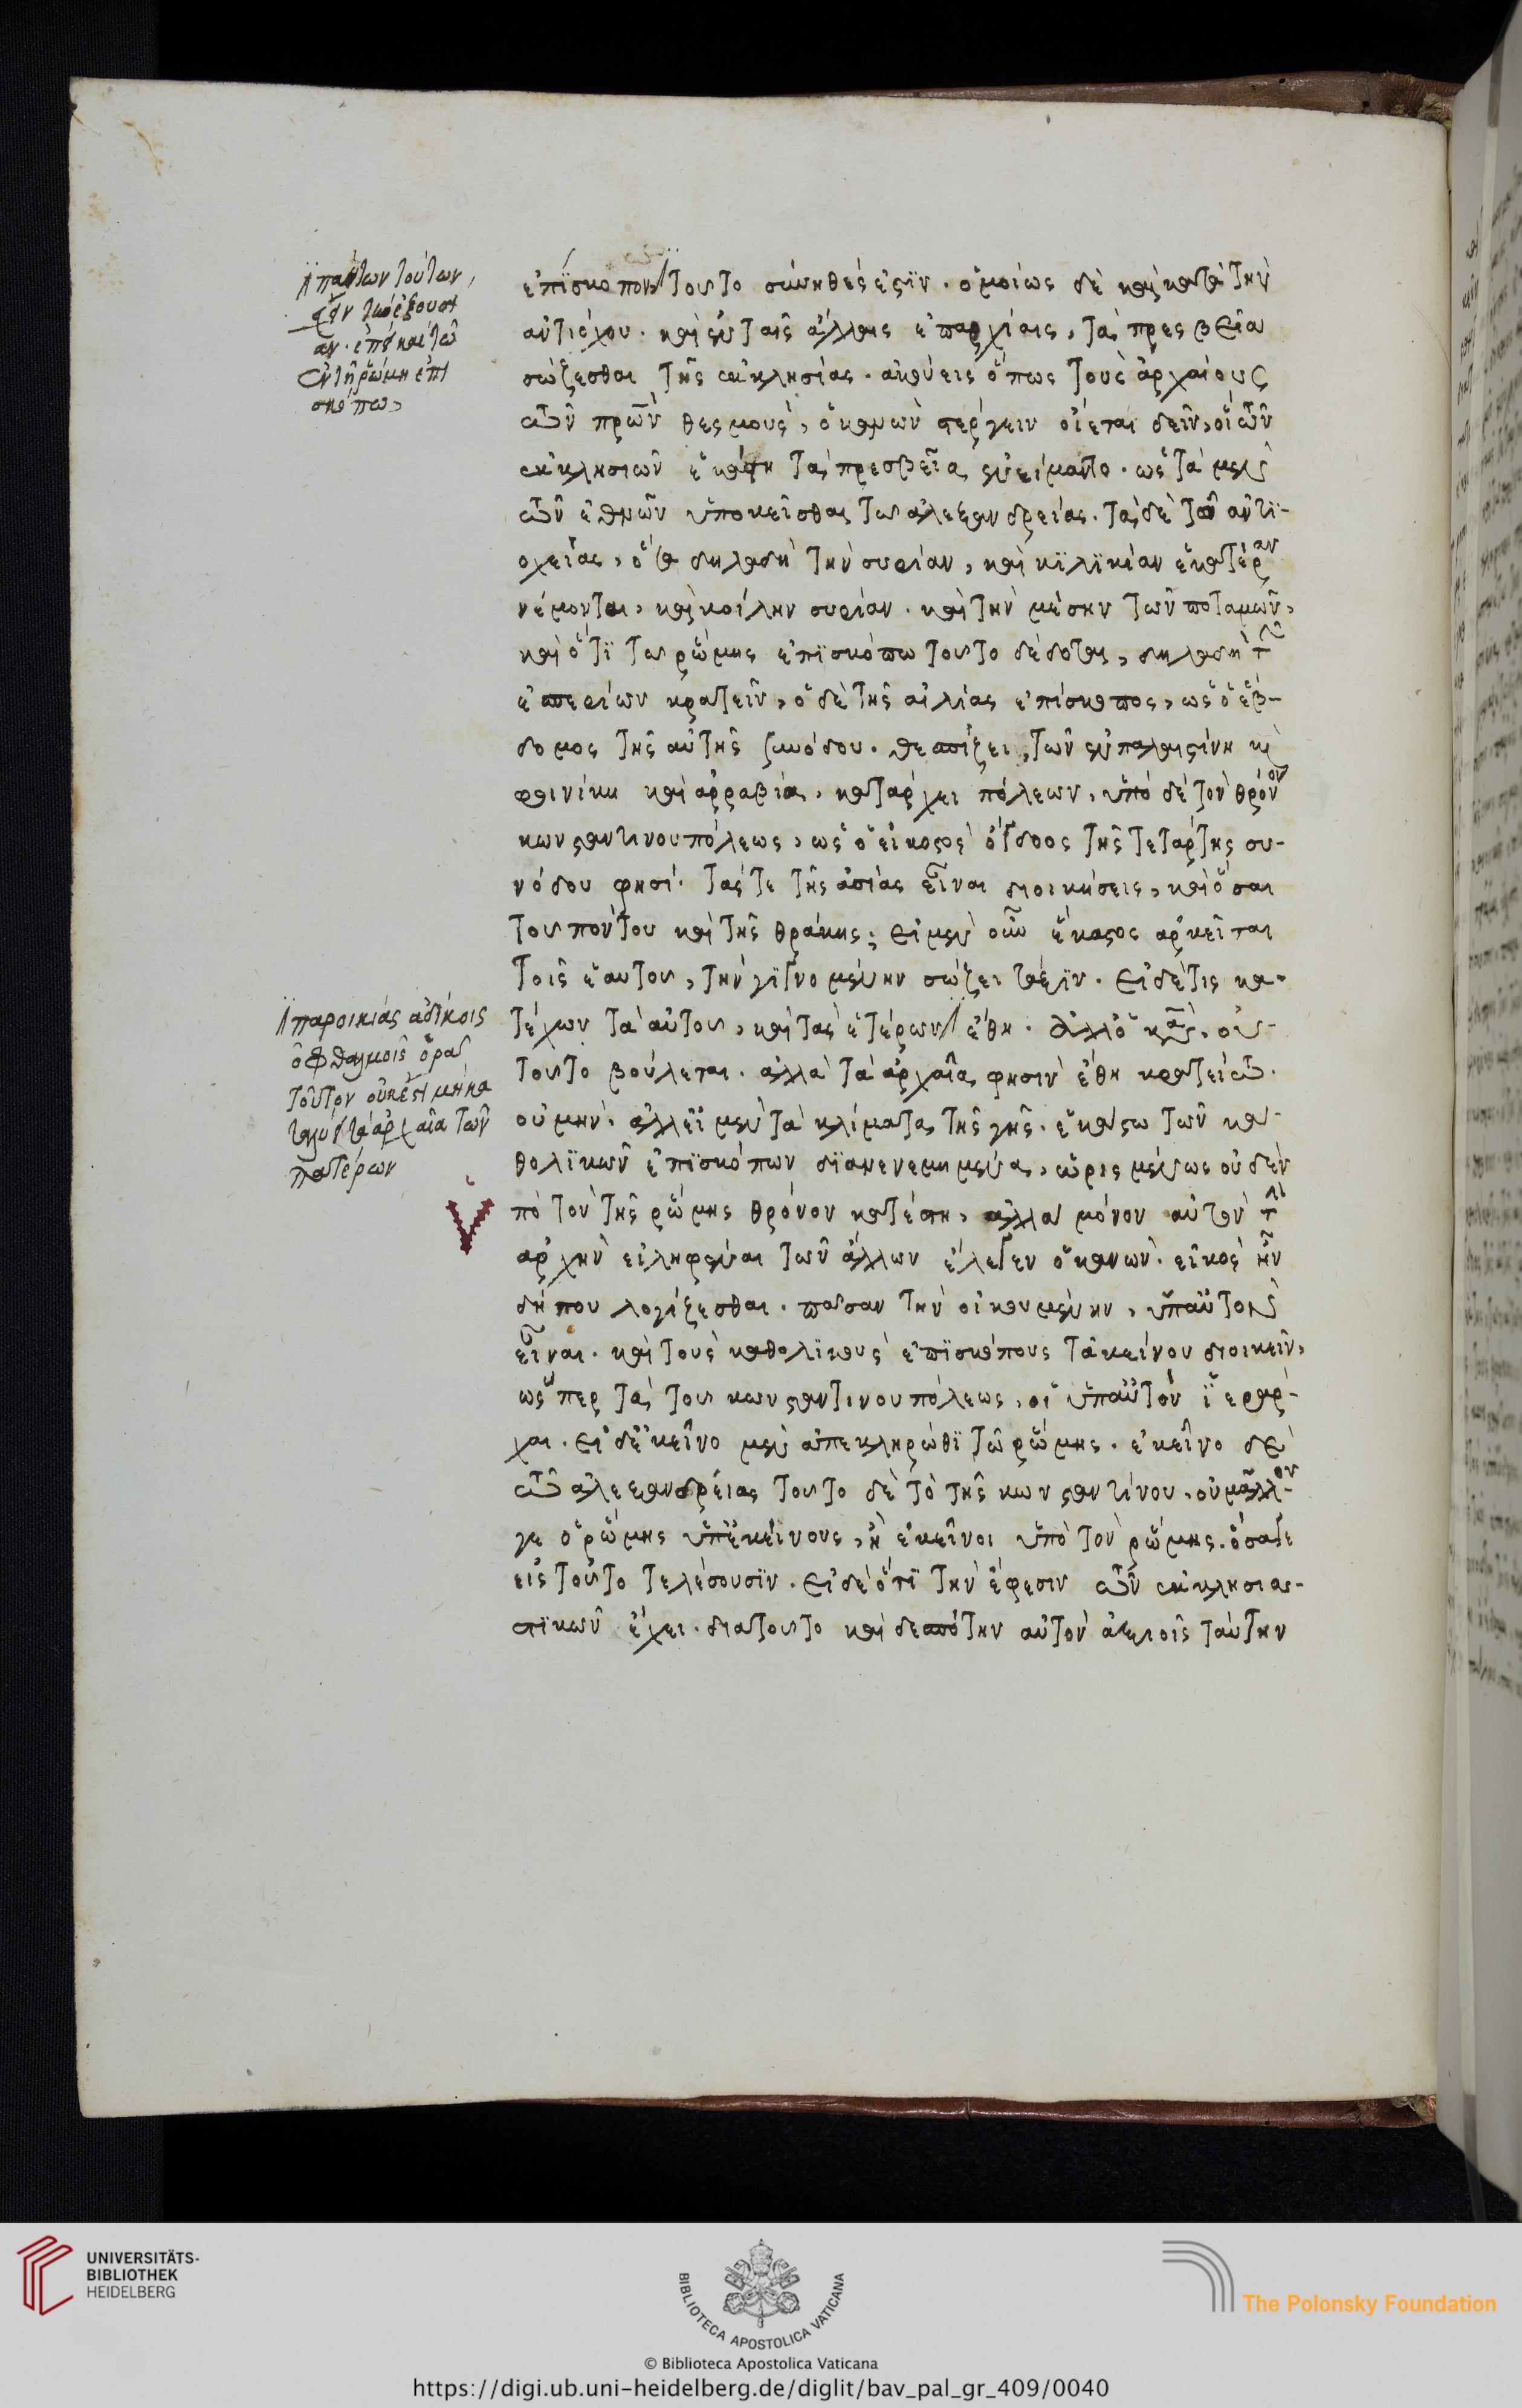 ἁπάντων τούτων
ἔχειν τὴν ἐξουσί
αν. ἐπὰν καὶ τῶ
ἐν τῇ ῥώμη ἐπι
σκόπω
ἐπισκοπον τοῦτο σύνηθές ἐστιν. ὁμοίως δὲ καὶ κατὰ τὴν
ἀντιόχου. καὶ ἐν ταῖς ἄλλαις ἐπαρχίαις, τὰ πρεσβεῖα
σώζεσθαι τῆς ἐκκλησίας. ἀκούεις ὅπως τοὺς ἀρχαίους
τῶν πρῶν θεσμοὺς, ὁ κανὼν στέργειν οἴεται δεῖν, οἳ τῶν
ἐκκλησιῶν ἑκάστη τὰ πρεσβεῖα ἐνείμαντο. ὡς τὰ μὲν
τῶν ἐθνῶν ὑποκεῖσθαι τῶ ἀλεξανδρείας. τὰ δὲ τῶ ἀντι-
οχείας, ὅσα δηλαδὴ τὴν συρίαν, καὶ κιλικίαν ἑκατέραν
νέμονται, καὶ κοίλην συρίαν. καὶ τὴν μέσην τῶν ποταμῶν,
καὶ ὅτι τῶ ῥώμης ἐπισκόπω τοῦτο δέδοται, δηλαδὴ τῶν
ἑσπερίων κρατεῖν, ὁ δὲ τῆς αἰλίας ἐπίσκοπος, ὡς ὁ ἕβ-
δομος τῆς αὐτῆς συνόδου. θεσπίζει, τῶν ἐν παλαιστίνη κ
φοινίκη καὶ ἀρραβία, κατάρχει πόλεων, ὑπὸ δὲ τὸν θρόνον
κωνσταντινουπόλεως, ὡς ὁ εἰκοστὸς ὄγδοος τῆς τετάρτης συ-
νόδου φησί. τάς τε τῆς ἀσίας εἶναι διοικήσεις, καὶ ὅσαι
τοῦ πόντου καὶ τῆς θράκης; εἰ μὲν οὖν ἕκαστος ἀρκεῖται
τοῖς ἑαυτοῦ, τὴν γιγνομένην σώζει τάξιν. εἰ δέ τις κα-
τέχων τὰ αὐτοῦ, καὶ τὰς ἑτέρων
παροικιάς ἀδίκοις
ὀφθαλμοῖς ὁρᾶ
τοῦτον οὐκέτι μὴ κα
ταλύ τὰ ἀρχαῖα τῶν
πατέρων
ἔθη. ἀλλ' ὁ κανὼν, οὐ
τοῦτο βούλεται. ἀλλὰ τὰ ἀρχαῖα φησιν ἔθη κρατείτω.
οὐ μὴν. ἀλλ' εἰ μὲν τὰ κλίματα τῆς γῆς. ἑκάστω τῶν κα-
θολικῶν ἐπισκόπων διανενεμημένα, ὡρισμένως οὐδὲν
πὸ τὸν τῆς ῥώμης θρόνον κατέστη, ἀλλὰ μόνον αὐτὸν τὴν
ἀρχὴν εἰληφέναι τῶν ἄλλων ἔλεγεν ὁ κανὼν. εἰκὸς ἦν
δήπου λογίζεσθαι. πᾶσαν τὴν οἰκουμένην, ὑπ' αὐτὸν
εἶναι. καὶ τοὺς καθολικοὺς ἐπισκόπους τἀκείνου διοικεῖν,
ὥσπερ τὰ τοῦ κωνσταντινουπόλεως, οἱ ὑπ' αὐτὸν ἱεράρ-
χαι. εἰ δ' ἐκεῖνο μὲν ἀπεκληρώθι τῶ ῥώμης. ἐκεῖνο δὲ
τῶ ἀλεξανδρείας τοῦτο δὲ τὸ τῆς κωνσταντίνου, οὐ μᾶλλον
γε ὁ ῥώμης ὑπ' ἐκείνους, ἢ ἐκεῖνοι ὑπὸ τὸν ῥώμης. ὅσα γε
εἰς τοῦτο τελέσουσιν. εἰ δὲ ὅτι τὴν ἔφεσιν τῶν ἐκκλησιασ-
τικῶν ἔχει. διὰ τοῦτο καὶ δεσπότην αὐτὸν ἀξιοῖς ταύτην
UNIVERSITÄTS-
BIBLIOTHEK
HEIDELBERG
BIBLIOTECA APOSTOLICA VATICANA
The Polonsky Foundation
© Biblioteca Apostolica Vaticana
https://digi.ub.uni-heidelberg.de/diglit/bav_pal_gr_409/0040